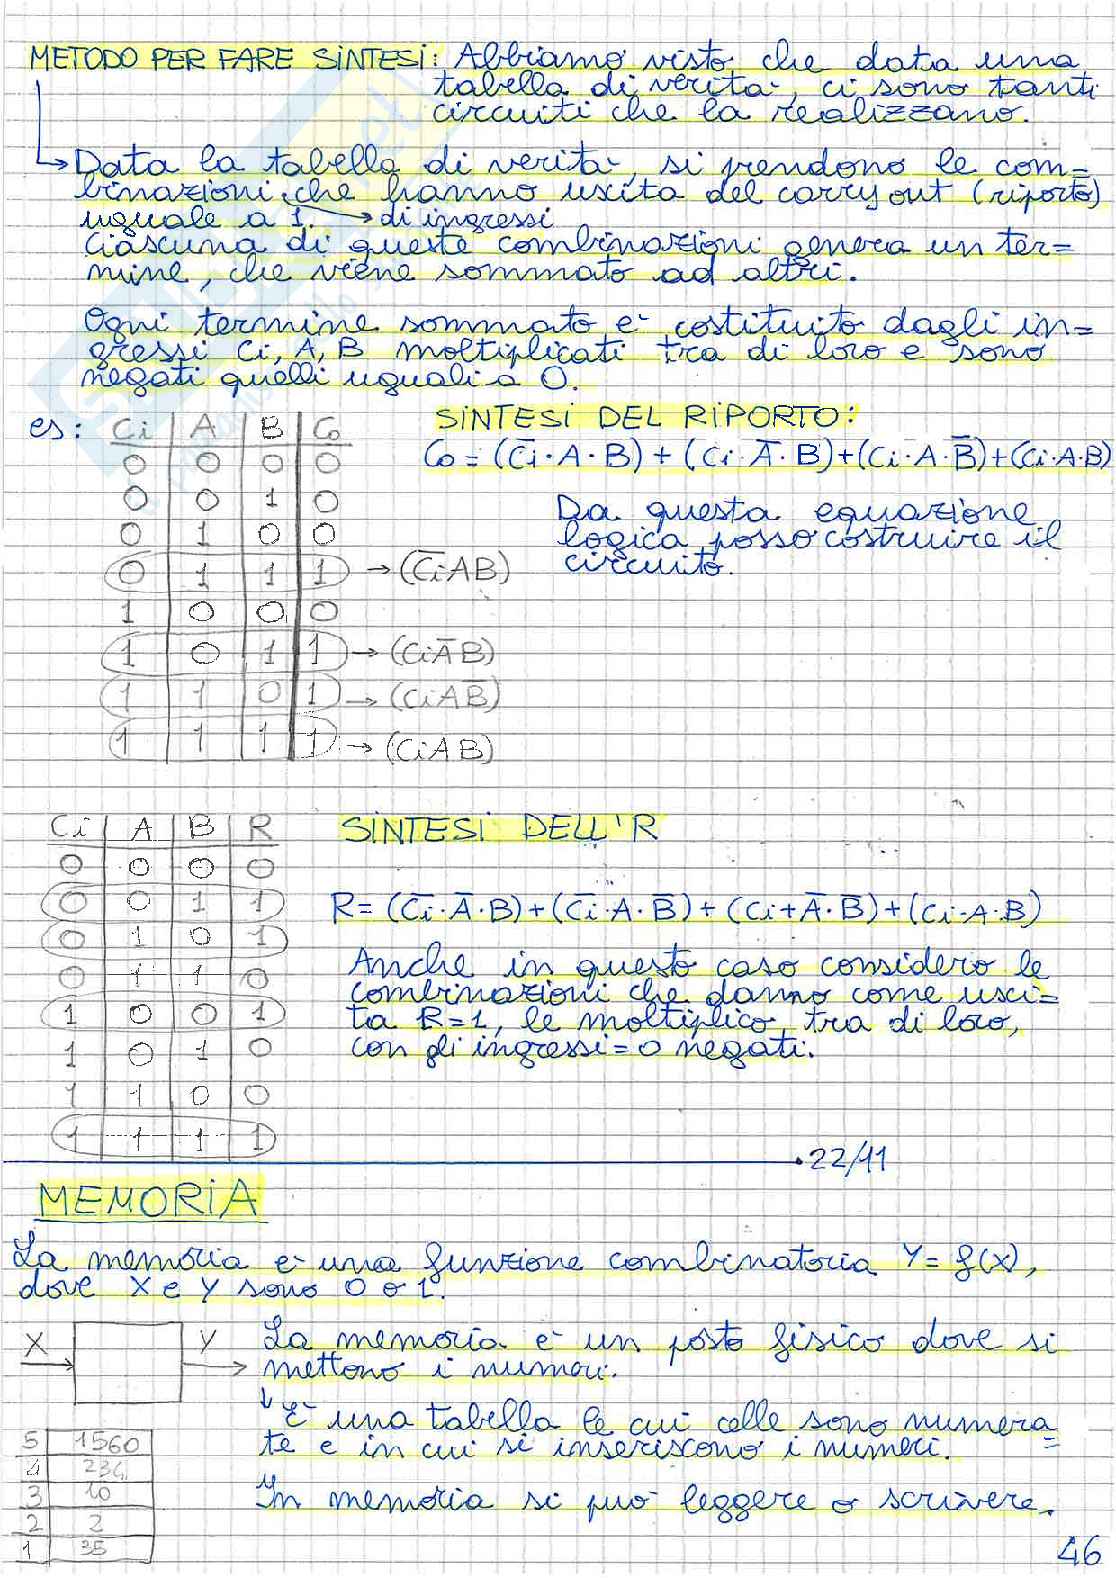 METODO PER FARE SINTESI: Abbiamo visto che data una
tabella di verità, ci sono tanti
circuiti che la realizzano.
Data la tabella di verità, si prendono le com=
binazioni che hanno uscita del carry out (riporto)
uguale a 1. → di ingressi
Ciascuna di queste combinazioni genera un ter=
mine, che viene sommato ad altri.
Ogni termine sommato è costituito dagli in=
gressi Ci, A, B moltiplicati tra di loro e sono
negati quelli uguali a 0.
es: Ci A B Co
0 0 0 0
0 0 1 0
0 1 0 0
0 1 1 1 → (C̅i̅AB)
1 0 0 0
1 0 1 1 → (CiA̅B)
1 1 0 1 → (CiAB̅)
1 1 1 1 → (CiAB)
SINTESI DEL RIPORTO:
Co = (C̅i̅·A·B) + (Ci·A̅·B) + (Ci·A·B̅) + (Ci·A·B)
Da questa equazione
logica posso costruire il
circuito.
Ci A B R
0 0 0 0
0 0 1 1
0 1 0 1
0 1 1 0
1 0 0 1
1 0 1 0
1 1 0 0
1 1 1 1
SINTESI DELL'R
R = (C̅i̅·A̅·B) + (C̅i̅·A·B̅) + (Ci+A̅·B̅) + (Ci·A·B)
Anche in questo caso considero le
combinazioni che danno come usci=
ta R=1, le moltiplico tra di loro,
con gli ingressi=0 negati.
22/11
MEMORIA
La memoria è una funzione combinatoria Y = f(x),
dove X e Y sono 0 o 1.
X Y
La memoria è un posto fisico dove si
mettono i numeri.
È una tabella le cui celle sono numera=
te e in cui si inseriscono i numeri.
In memoria si può leggere o scrivere.
5 1560
4 234
3 10
2 2
1 35
46